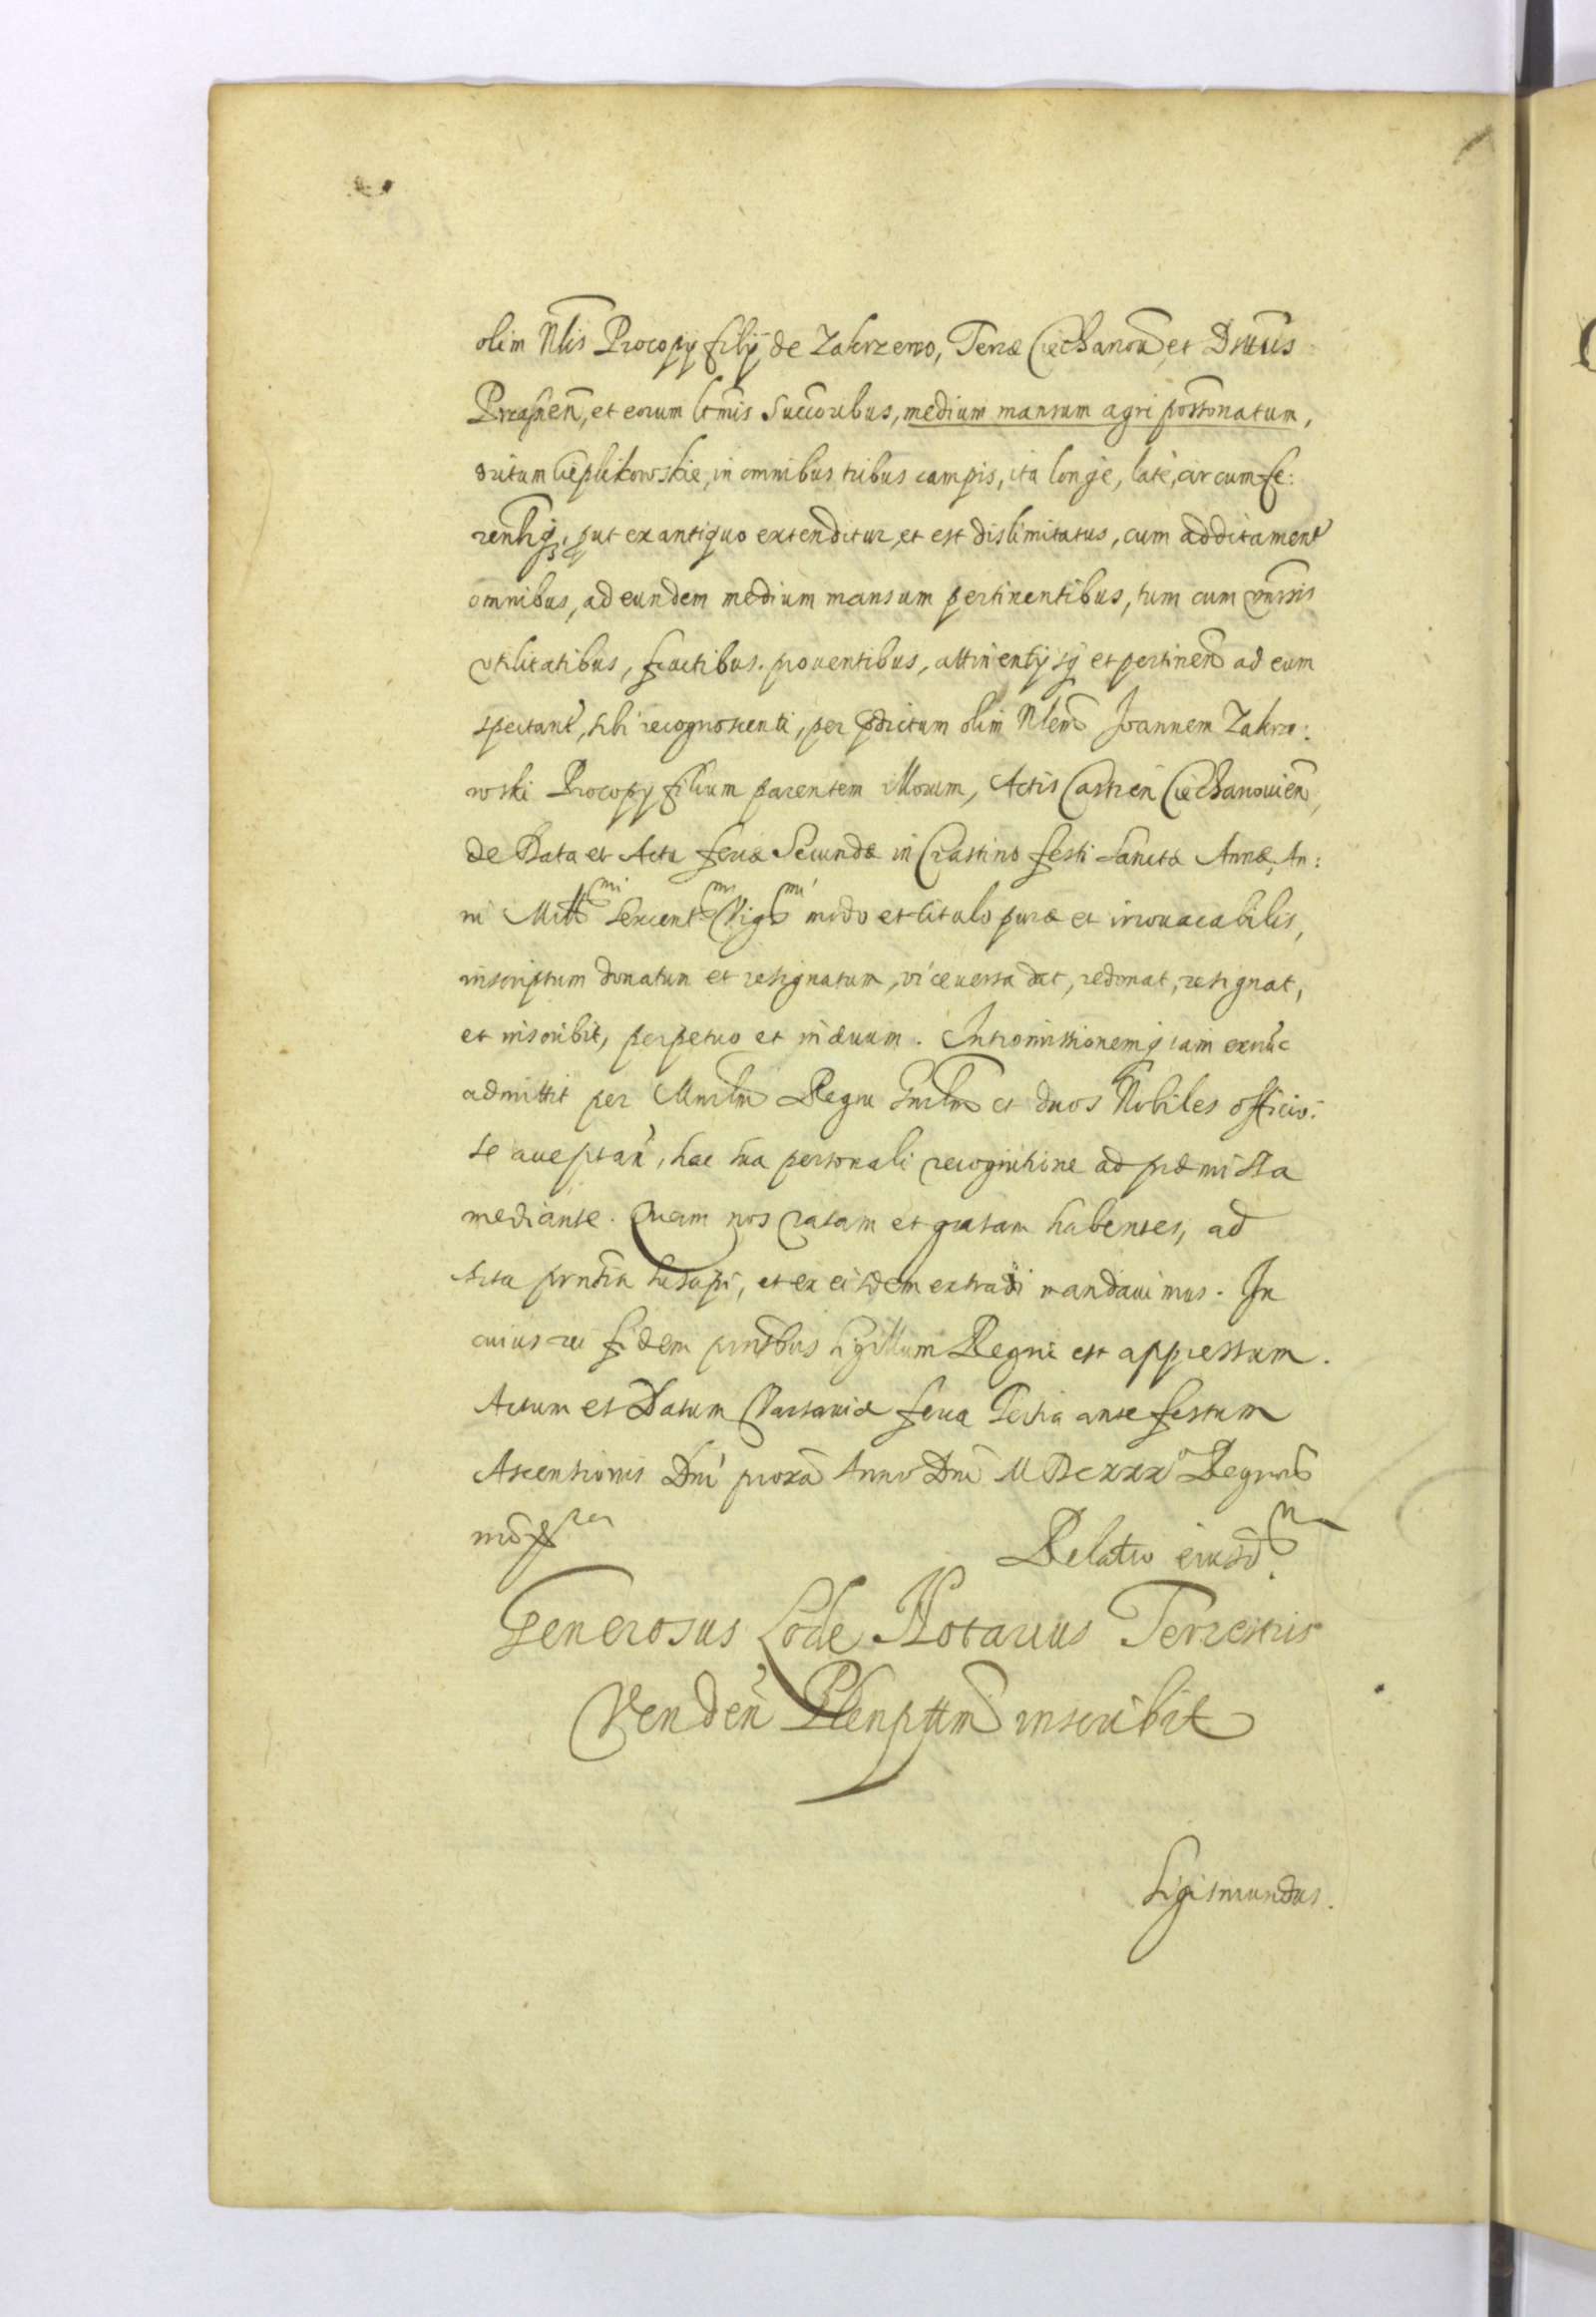 olim Nlis Procopÿ filÿ de Zakrzewo, Terræ Ciechanoũ, et Dīctus
Przasnen̄, et eorum ltmis Succoribus, medium mansum agri possonatum,
dictum Cieplikowskie, in omnibus tribus campis, ita longe, latè, circumfe:
rentijq, put ex antiquo extenditur, et est dislimitatus, cum additament
omnibus, ad eundem medium mansum pertinentibus, tum cum vnīssis
vtilitatibus, fructibus. prouentibus, attinentijsq et pertinen ad eum
spectant, sibi recognoscenti, per pdictum olim Nlem Joannem Zakrze:
wski Procopÿ filium parentem illorum, Actis Castren Ciechanouien,
de Data et Actu feriæ Secundæ in Crastino festi Sanctæ Annæ, An:
ni Mill mi Sexcent mi Vigs mi modo et titulo puræ et irreuacabilis,
inscriptum donatum et resignatum, viceuersa dat, redonat, resignat,
et inscribit, perpetuo et in æuum. Intromissionemq iam exnūc
admittit per Mnrlm Regni Gnrlm et duos Nobiles officio:
se acceptan, hac sua personali recognitione ad præmissa
mediante. Quam nos ratam et gratam habentes, ad
Acta prntia suscipi, et ex eisdem extradi mandauimus. In
cuius rei fidem prntibus Sigillum Regni est appressum.
Actum et Datum Varsauiæ feria Tertia ante festum
Ascensionis Dni proxa Anno Dni MDCXXX° Regnor
nrō
Relatio eiusd m
Generosus Lode Notarius Terrestris
Venden Plenpttm inscribit
Sigismundus.